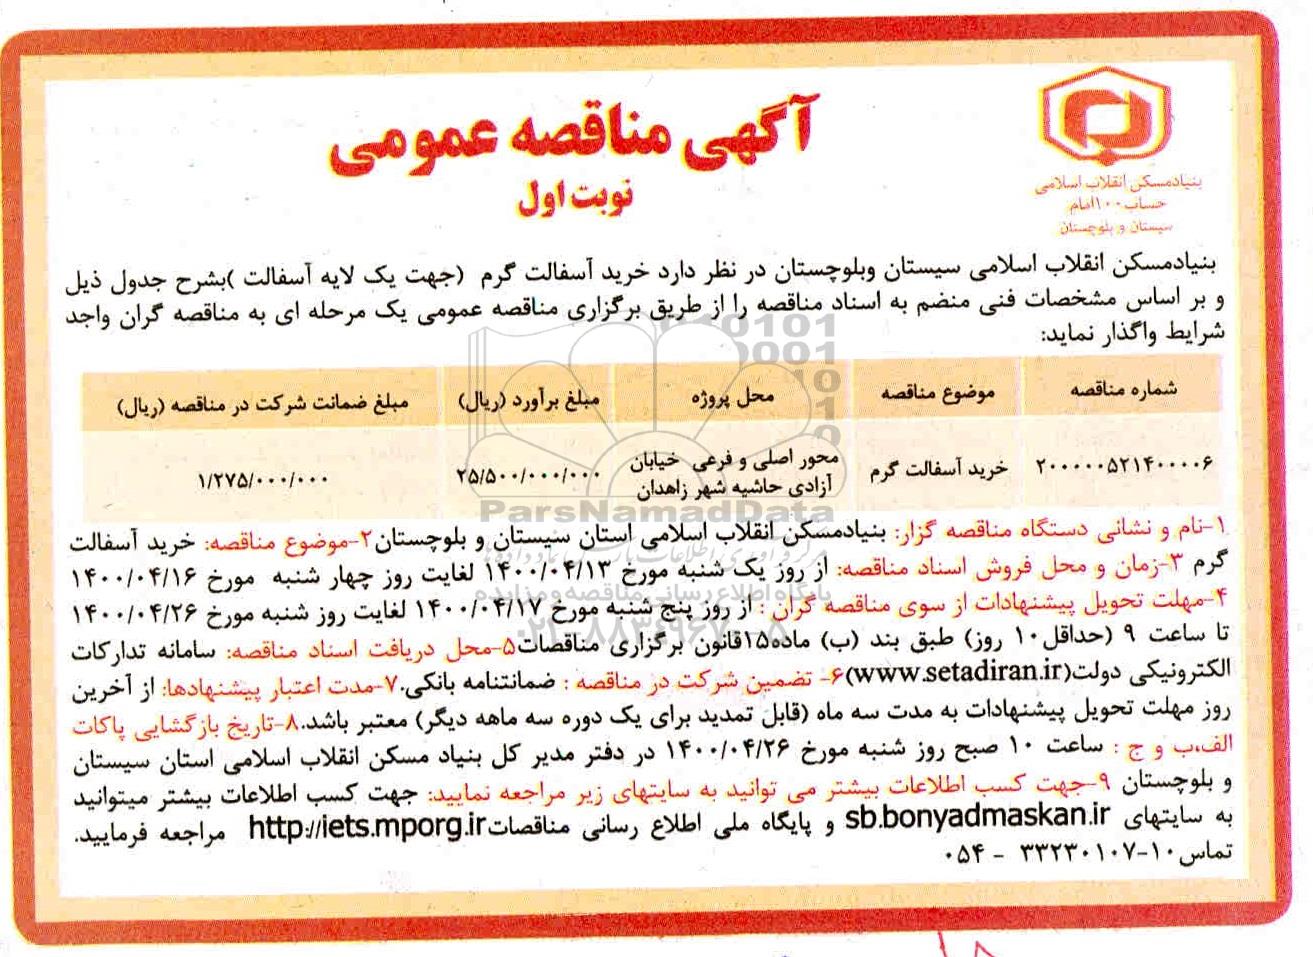 آگهی مناقصه عمومی
نوبت اول
بنیادمسکن انقلاب اسلامی
حساب۱۰۰امام
سیستان و بلوچستان
بنیادمسکن انقلاب اسلامی سیستان وبلوچستان در نظر دارد خرید آسفالت گرم (جهت یک لایه آسفالت )بشرح جدول ذیل
و بر اساس مشخصات فنی منضم به اسناد مناقصه را از طریق برگزاری مناقصه عمومی یک مرحله ای به مناقصه گران واجد
شرایط واگذار نماید:
شماره مناقصه موضوع مناقصه محل پروژه مبلغ برآورد (ریال) مبلغ ضمانت شرکت در مناقصه (ریال)
۲۰۰۰۰۰۵۲۱۴۰۰۰۰۶ خرید آسفالت گرم محور اصلی و فرعی خیابان آزادی حاشیه شهر زاهدان ۲۵/۵۰۰/۰۰۰/۰۰۰ ۱/۲۷۵/۰۰۰/۰۰۰
ParsNamadData
۱-نام و نشانی دستگاه مناقصه گزار: بنیادمسکن انقلاب اسلامی استان سیستان و بلوچستان۲-موضوع مناقصه: خرید آسفالت
گرم ۳-زمان و محل فروش اسناد مناقصه: از روز یک شنبه مورخ ۱۴۰۰/۰۴/۱۳ لغایت روز چهار شنبه مورخ ۱۴۰۰/۰۴/۱۶
پایگاه اطلاع رسانی مناقصه و مزایده
۴-مهلت تحویل پیشنهادات از سوی مناقصه گران : از روز پنج شنبه مورخ ۱۴۰۰/۰۴/۱۷ لغایت روز شنبه مورخ ۱۴۰۰/۰۴/۲۶
تا ساعت ۹ (حداقل۱۰ روز) طبق بند (ب) ماده۱۵قانون برگزاری مناقصات۵-محل دریافت اسناد مناقصه: سامانه تدارکات
الکترونیکی دولت(www.setadiran.ir)۶- تضمین شرکت در مناقصه : ضمانتنامه بانکی.۷-مدت اعتبار پیشنهادها: از آخرین
روز مهلت تحویل پیشنهادات به مدت سه ماه (قابل تمدید برای یک دوره سه ماهه دیگر) معتبر باشد.۸-تاریخ بازگشایی پاکات
الف،ب و ج : ساعت ۱۰ صبح روز شنبه مورخ ۱۴۰۰/۰۴/۲۶ در دفتر مدیر کل بنیاد مسکن انقلاب اسلامی استان سیستان
و بلوچستان ۹-جهت کسب اطلاعات بیشتر می توانید به سایتهای زیر مراجعه نمایید: جهت کسب اطلاعات بیشتر میتوانید
به سایتهای sb.bonyadmaskan.ir و پایگاه ملی اطلاع رسانی مناقصات http://iets.mporg.ir مراجعه فرمایید.
تماس ۱۰-۳۳۲۳۰۱۰۷ - ۰۵۴